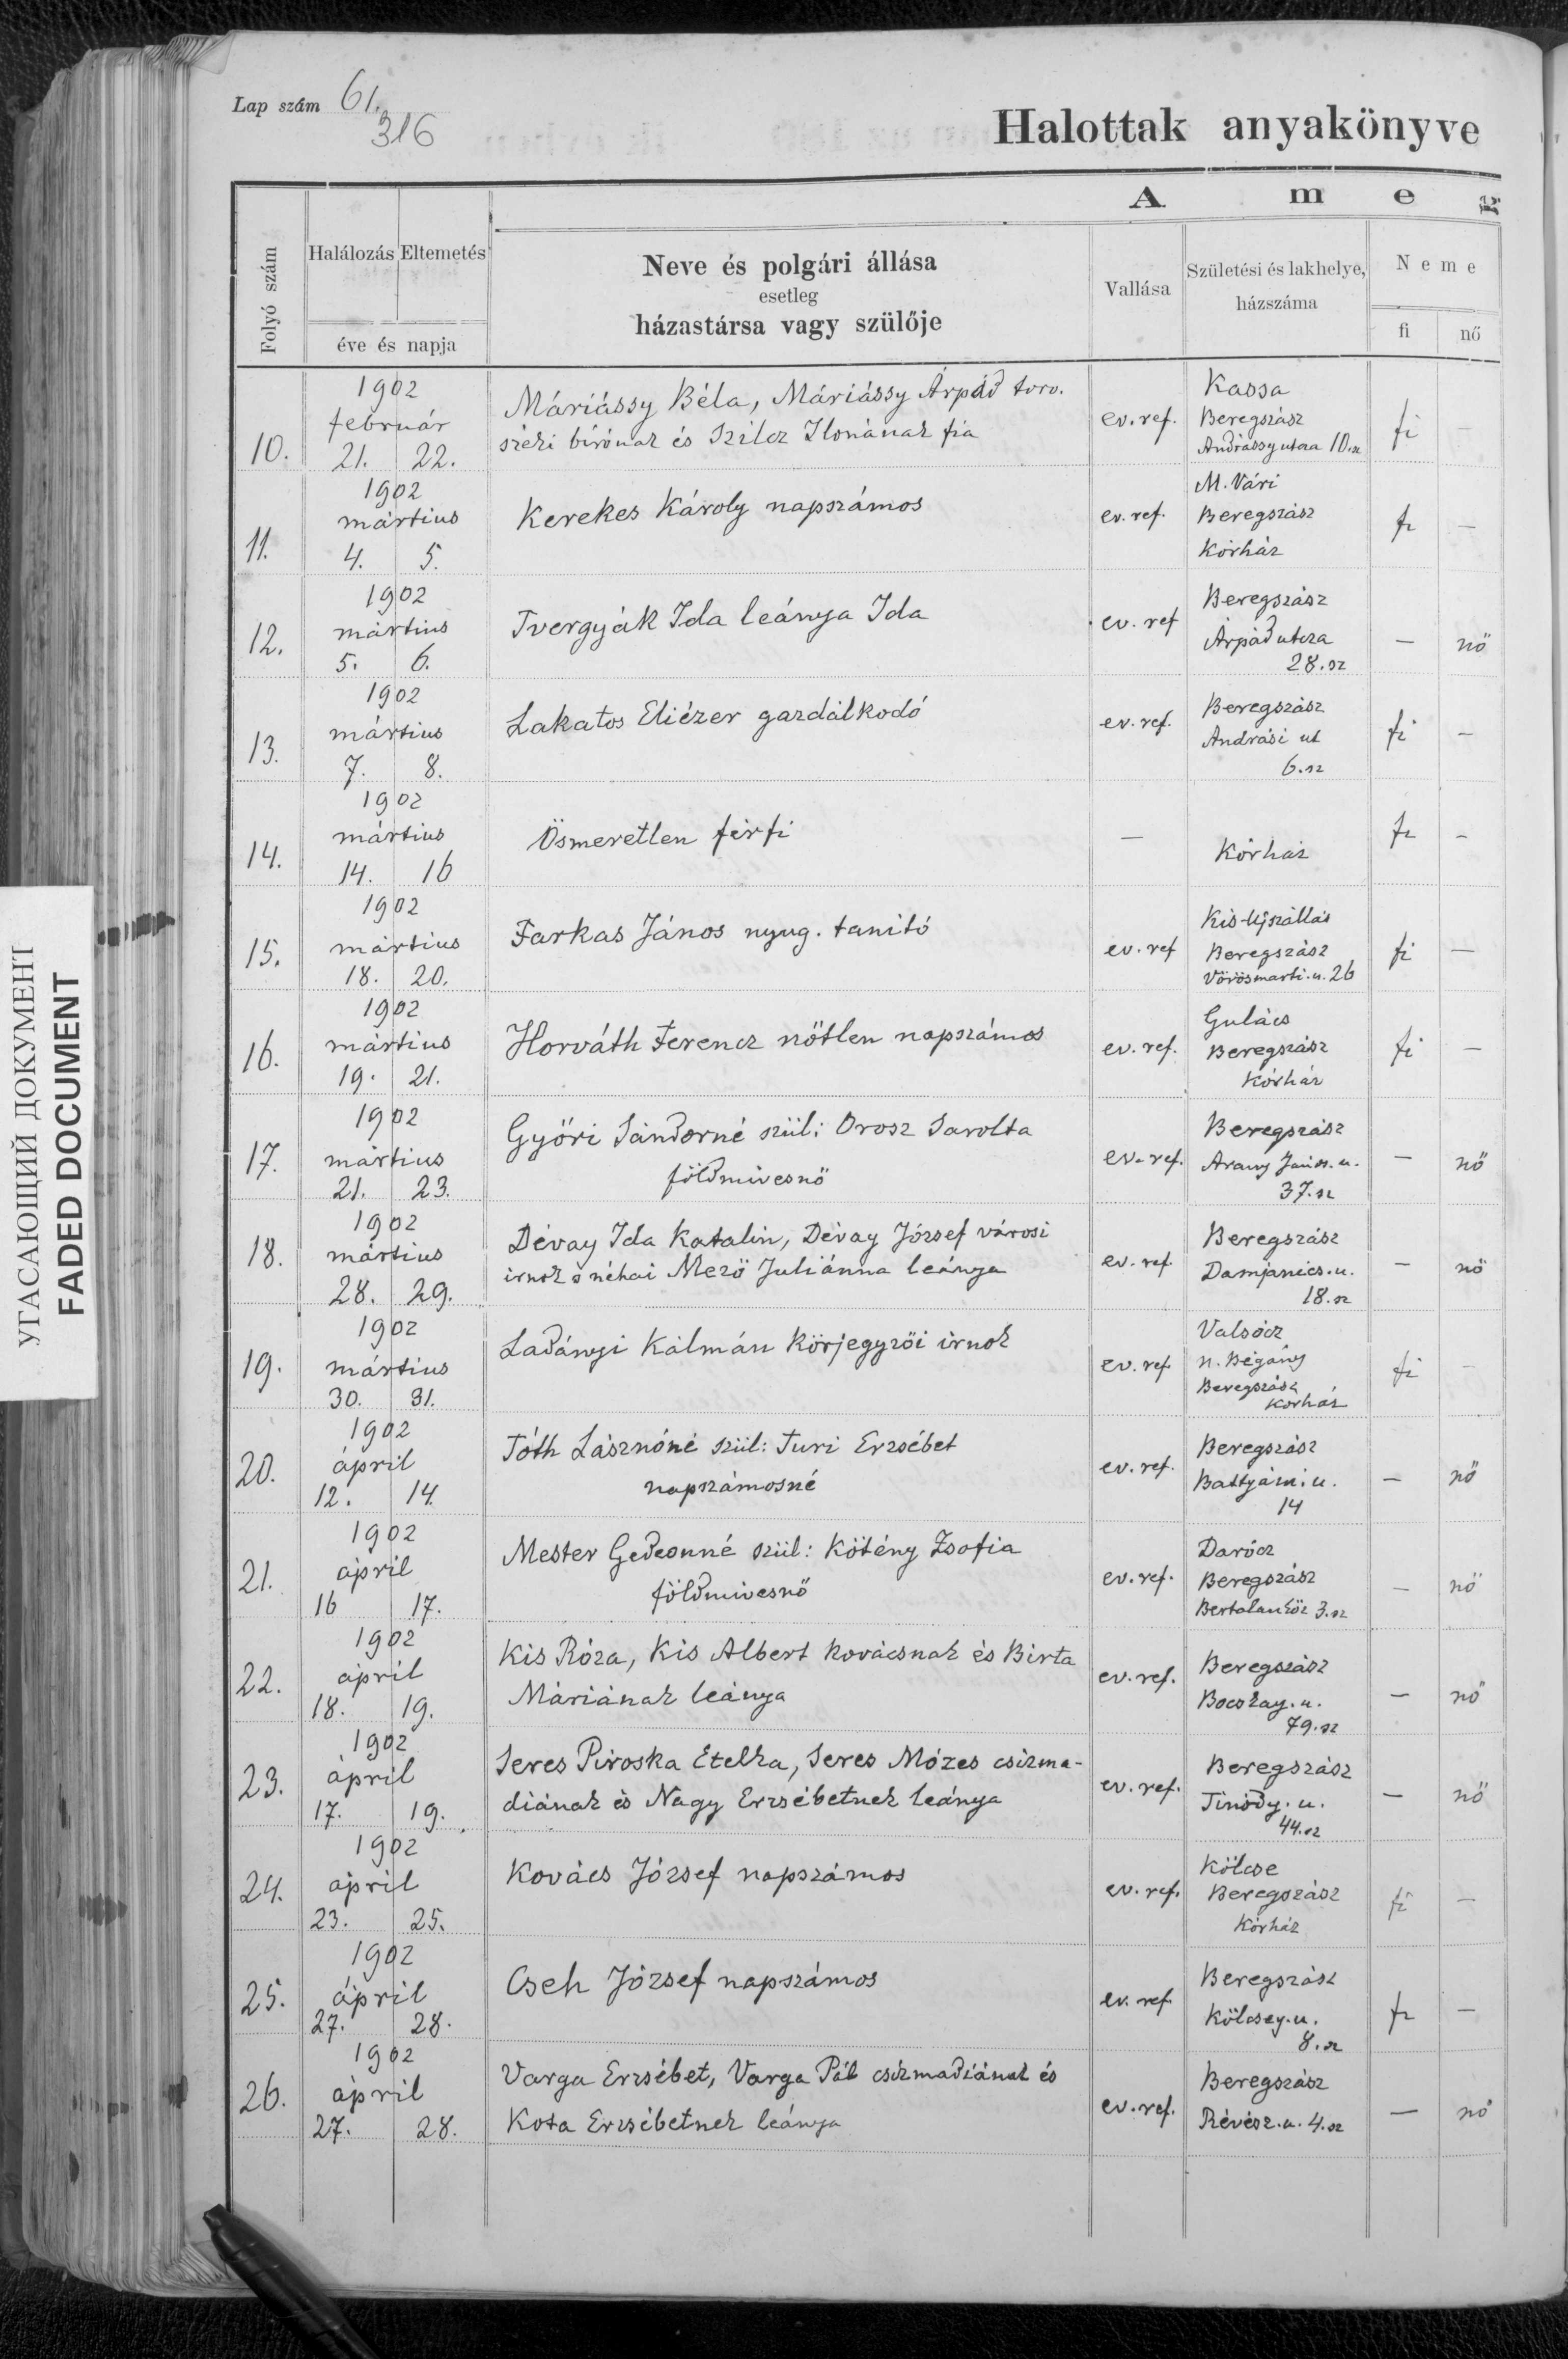 Lap szám 61.
316
Halottak anyakönyve
A m e g
Folyó szám
Halálozás Eltemetés
éve és napja
Neve és polgári állása
esetleg
házastársa vagy szülője
Vallása
Születési és lakhelye,
házszáma
Neme
fi nő
10.
1902
február
21. 22.
Máriássy Béla, Máriássy Árpád törv.
széki birónak és Szilcz Ilonának fia
ev. ref.
Kassa
Beregszász
Andrássy utcza 10.sz
fi –
11.
1902
mártius
4. 5.
Kerekes Károly napszámos
ev. ref.
M. Vári
Beregszász
Kórház
fi –
12.
1902
mártius
5. 6.
Tvergyák Ida leánya Ida
ev. ref
Beregszász
Árpád utcza
28.sz
– nö
13.
1902
mártius
7. 8.
Lakatos Eliézer gazdálkodó
ev. ref.
Beregszász
Andrási ut
6.sz
fi –
14.
1902
mártius
14. 16
Ösmeretlen férfi
–
Kórház
fi –
15.
1902
mártius
18. 20.
Farkas János nyug. tanitó
ev. ref
Kis-Ujszállás
Beregszász
Vörösmarti.u. 26
fi –
16.
1902
mártius
19. 21.
Horváth Ferencz nőtlen napszámos
ev. ref.
Gulács
Beregszász
Kórház
fi –
17.
1902
mártius
21. 23.
Győri Sándorné szül: Orosz Sarolta
földmivesnö
ev. ref.
Beregszász
Arany János.u.
37.sz
– nö
18.
1902
mártius
28. 29.
Dévay Ida Katalin, Dévay József városi
irnok s néhai Mező Juliánna leánya
ev. ref.
Beregszász
Damjanics.u.
18.sz
– nö
19.
1902
mártius
30. 31.
Ladányi Kálmán körjegyzői irnok
ev. ref.
Valsócz
n. Bégány
Beregszász
Kórház
fi –
20.
1902
április
12. 14.
Tóth Lásznóné szül: Turi Erzsébet
napszámosné
ev. ref.
Beregszász
Battyáni.u.
14
– nö
21.
1902
april
16 17.
Mester Gedeonné szül: Kötény Zsofia
földmivesnö
ev. ref.
Darócz
Beregszász
Bertalanköz 3.sz
– nö
22.
1902
april
18. 19.
Kis Róza, Kis Albert kovácsnak és Birta
Máriának leánya
ev. ref.
Beregszász
Bocskay.u.
79.sz
– nö
23.
1902
april
17. 19.
Seres Piroska Etelka, Seres Mózes csizma-
diának és Nagy Erzsébetnek leánya
ev. ref.
Beregszász
Tinódy.u.
44.sz
– nö
24.
1902
april
23. 25.
Kovács József napszámos
ev. ref.
Kölcse
Beregszász
Kórház
fi –
25.
1902
ápril
27. 28.
Cseh József napszámos
ev. ref.
Beregszász
Kölcsey.u.
8.sz
fi –
26.
1902
april
27. 28.
Varga Erzsébet, Varga Pál csizmadiának és
Kota Erzsébetnek leánya
ev. ref.
Beregszász
Révész.u. 4.sz
– nö
УГАСАЮЩИЙ ДОКУМЕНТ
FADED DOCUMENT